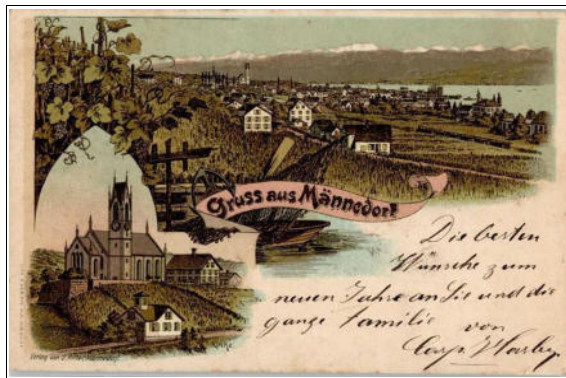 Gruss aus Männedorf
Die besten
Wünsche zum
neuen Jahre an Sie und die
ganze Familie
von
Kirche
Verlag von